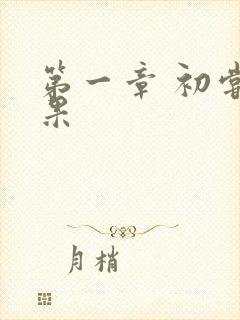 第一章 初尝
果
月梢